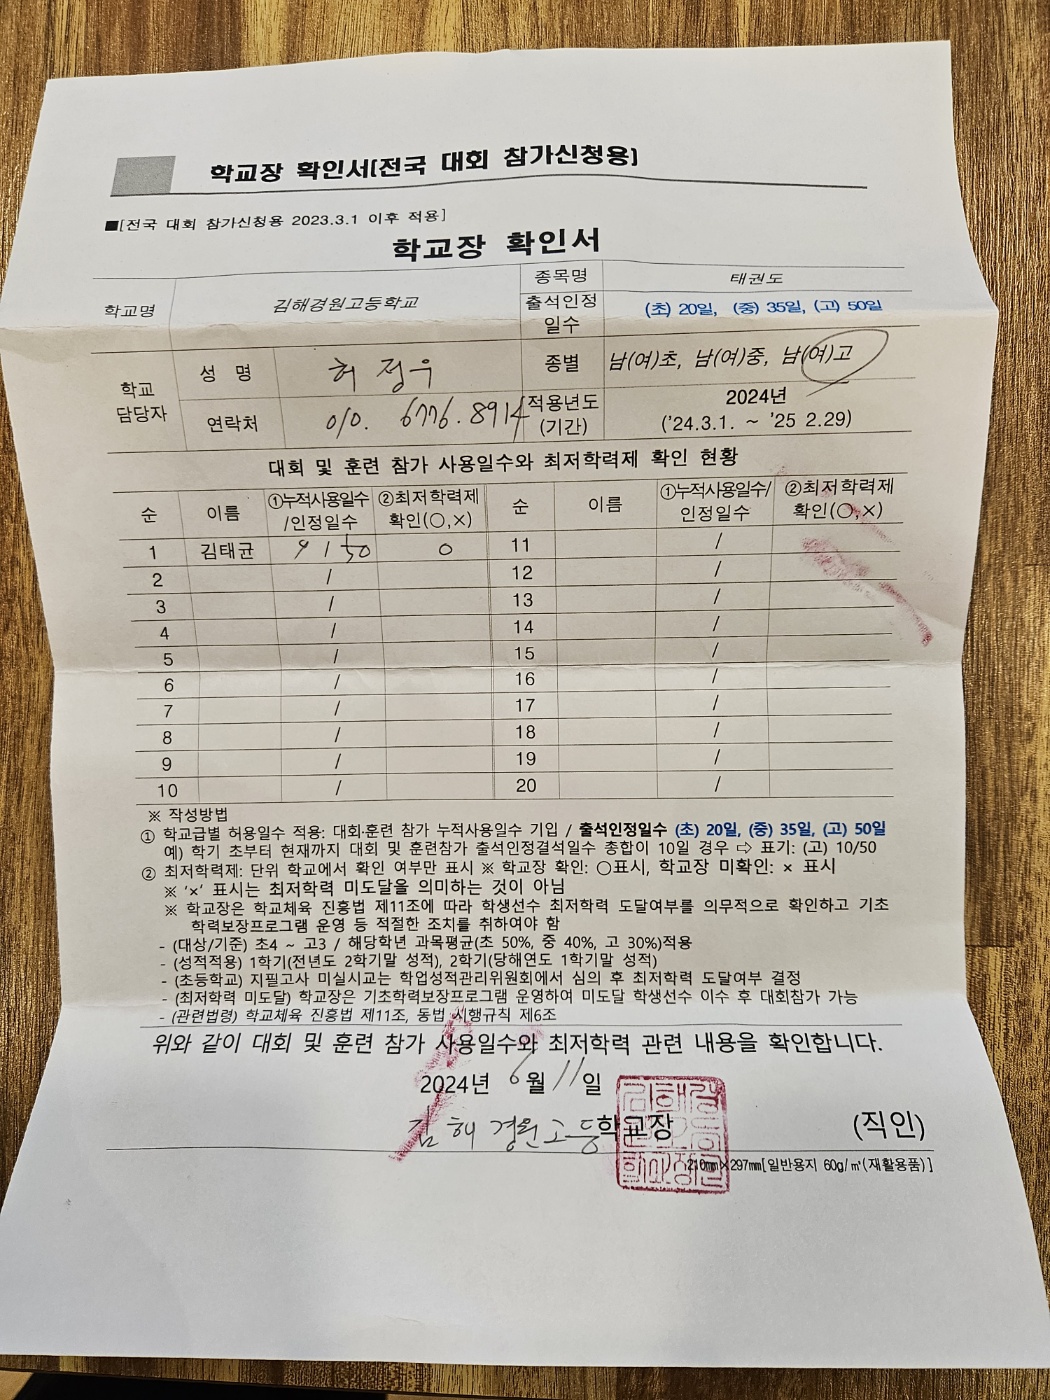 학교장 확인서(전국 대회 참가신청용)
■[전국 대회 참가신청용 2023.3.1 이후 적용]
학교장 확인서
학교명 김해경원고등학교 종목명 태권도
출석인정 일수 (초) 20일, (중) 35일, (고) 50일
학교 담당자 성 명 허 정우 종별 남(여)초, 남(여)중, 남(여)고
연락처 010. 6776.8914 적용년도 (기간) 2024년 ('24.3.1. ~ '25 2.29)
대회 및 훈련 참가 사용일수와 최저학력제 확인 현황
순 이름 ①누적사용일수/인정일수 ②최저학력제 확인(○,×) 순 이름 ①누적사용일수/인정일수 ②최저학력제 확인(○,×)
1 김태균 9 / 50 ○ 11 /
2 / 12 /
3 / 13 /
4 / 14 /
5 / 15 /
6 / 16 /
7 / 17 /
8 / 18 /
9 / 19 /
10 / 20 /
※ 작성방법
① 학교급별 허용일수 적용: 대회·훈련 참가 누적사용일수 기입 / 출석인정일수 (초) 20일, (중) 35일, (고) 50일
예) 학기 초부터 현재까지 대회 및 훈련참가 출석인정결석일수 총합이 10일 경우 ⇨ 표기: (고) 10/50
② 최저학력제: 단위 학교에서 확인 여부만 표시 ※ 학교장 확인: ○표시, 학교장 미확인: × 표시
※ '×' 표시는 최저학력 미도달을 의미하는 것이 아님
※ 학교장은 학교체육 진흥법 제11조에 따라 학생선수 최저학력 도달여부를 의무적으로 확인하고 기초
학력보장프로그램 운영 등 적절한 조치를 취하여야 함
- (대상/기준) 초4 ~ 고3 / 해당학년 과목평균(초 50%, 중 40%, 고 30%)적용
- (성적적용) 1학기(전년도 2학기말 성적), 2학기(당해연도 1학기말 성적)
- (초등학교) 지필고사 미실시교는 학업성적관리위원회에서 심의 후 최저학력 도달여부 결정
- (최저학력 미도달) 학교장은 기초학력보장프로그램 운영하여 미도달 학생선수 이수 후 대회참가 가능
- (관련법령) 학교체육 진흥법 제11조, 동법 시행규칙 제6조
위와 같이 대회 및 훈련 참가 사용일수와 최저학력 관련 내용을 확인합니다.
2024년 6월 11일
김해 경원고등학교장 (직인)
210㎜×297㎜[일반용지 60g/㎡(재활용품)]